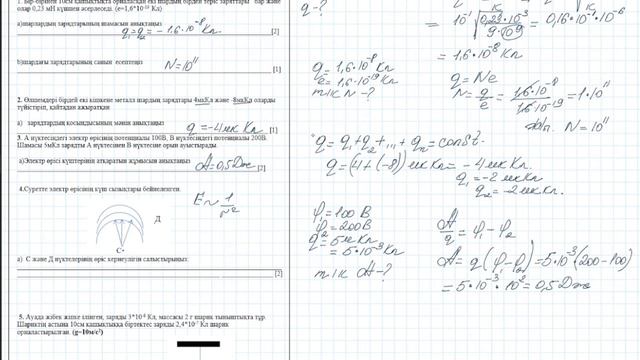 1. Бір-бірінен 10см қашықтықта орналасқан екі шардың бірдей теріс зарядтары бар және
олар 0,23 мН күшпен әсерлеседі. (e=1,6*10⁻¹⁹ Кл)
a)шарлардың зарядтарының шамасын анықтаңыз
q₁=q₂= -1,6·10⁻⁸ Кл [2]
b)шардағы зарядтарының санын есептеңіз N=10¹¹
[1]
2. Өлшемдері бірдей екі кішкене металл шардың зарядтары 4мкКл және -8мкКл оларды
түйістіріп, қайтадан ажыратқан
a) зарядтардың қосындысының мәнін анықтаңыз
q=-4мкКл [1]
3. А нүктесіндегі электр өрісінің потенциалы 100В, В нүктесіндегі потенциалы 200В.
Шамасы 5мКл зарядты А нүктесінен В нүктесіне орын ауыстырады.
a)Электр өрісі күштерінің атқаратын жұмысын анықтаңыз
A=0,5Дж [2]
4.Суретте электр өрісінің күш сызықтары бейнеленген.
E~1/r²
Д
C
a) С және Д нүктелерінің өріс кернеулігін салыстырыңыз:
[2]
5. Ауада жібек жіпке ілінген, заряды 3*10⁻⁸ Кл, массасы 2 г шарик тыныштықта тұр.
Шариктің астына 10см қашықтыққа біртектес заряды 2,4*10⁻⁷ Кл шарик
орналастырылған. (g=10м/с²)
q-?
= 10⁻¹ √(0,23·10⁻³ / 9·10⁹) = 0,16·10⁻¹·10⁻⁶
= 1,6·10⁻⁸ Кл
q=1,6·10⁻⁸ Кл
e=1,6·10⁻¹⁹ Кл
т/к N-?
q=Ne
N=q/e=1,6·10⁻⁸/1,6·10⁻¹⁹=1·10¹¹
N=10¹¹
q=q₁+q₂+...+qₙ=const.
q=(4+(-8))мкКл=-4мкКл.
q₁=-2мкКл
q₂=-2мкКл.
φ₁=100 В
φ₂=200В
q=5мКл
=5·10⁻³Кл
т/к A-?
A/q=φ₁-φ₂
A=q(φ₁-φ₂)=5·10⁻³(200-100)
=5·10⁻³·10²=0,5Дж